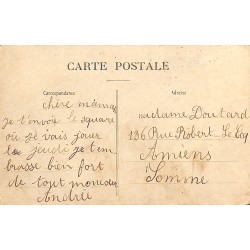 CARTE POSTALE
Correspondance
Adresse
chère maman
je t'envoie le square
où je vais jouer
le jeudi je t'em
brasse bien fort
de tout mon cœur
Andrée
Madame Doutard
136 Rue Robert-Lecoq
Amiens
Somme